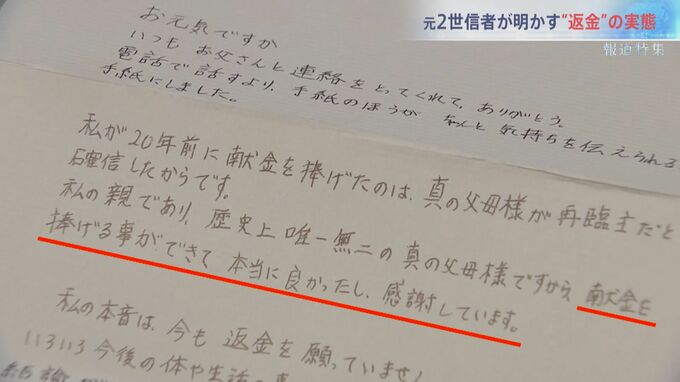 元2世信者が明かす“返金”の実態
報道特集
お元気ですか
いつもお父さんと連絡をとってくれて、ありがとう。
電話で話すより、手紙のほうが ちゃんと 気持ちを伝えられる
手紙にしました。
私が20年前に献金を捧げたのは、真の父母様が再臨主だと
確信したからです。
私の親であり、歴史上唯一無二の真の父母様ですから、献金を
捧げる事ができて 本当に良かったし、感謝しています。
私の本音は、今も返金を願っていません
いろいろ今後の体や生活の